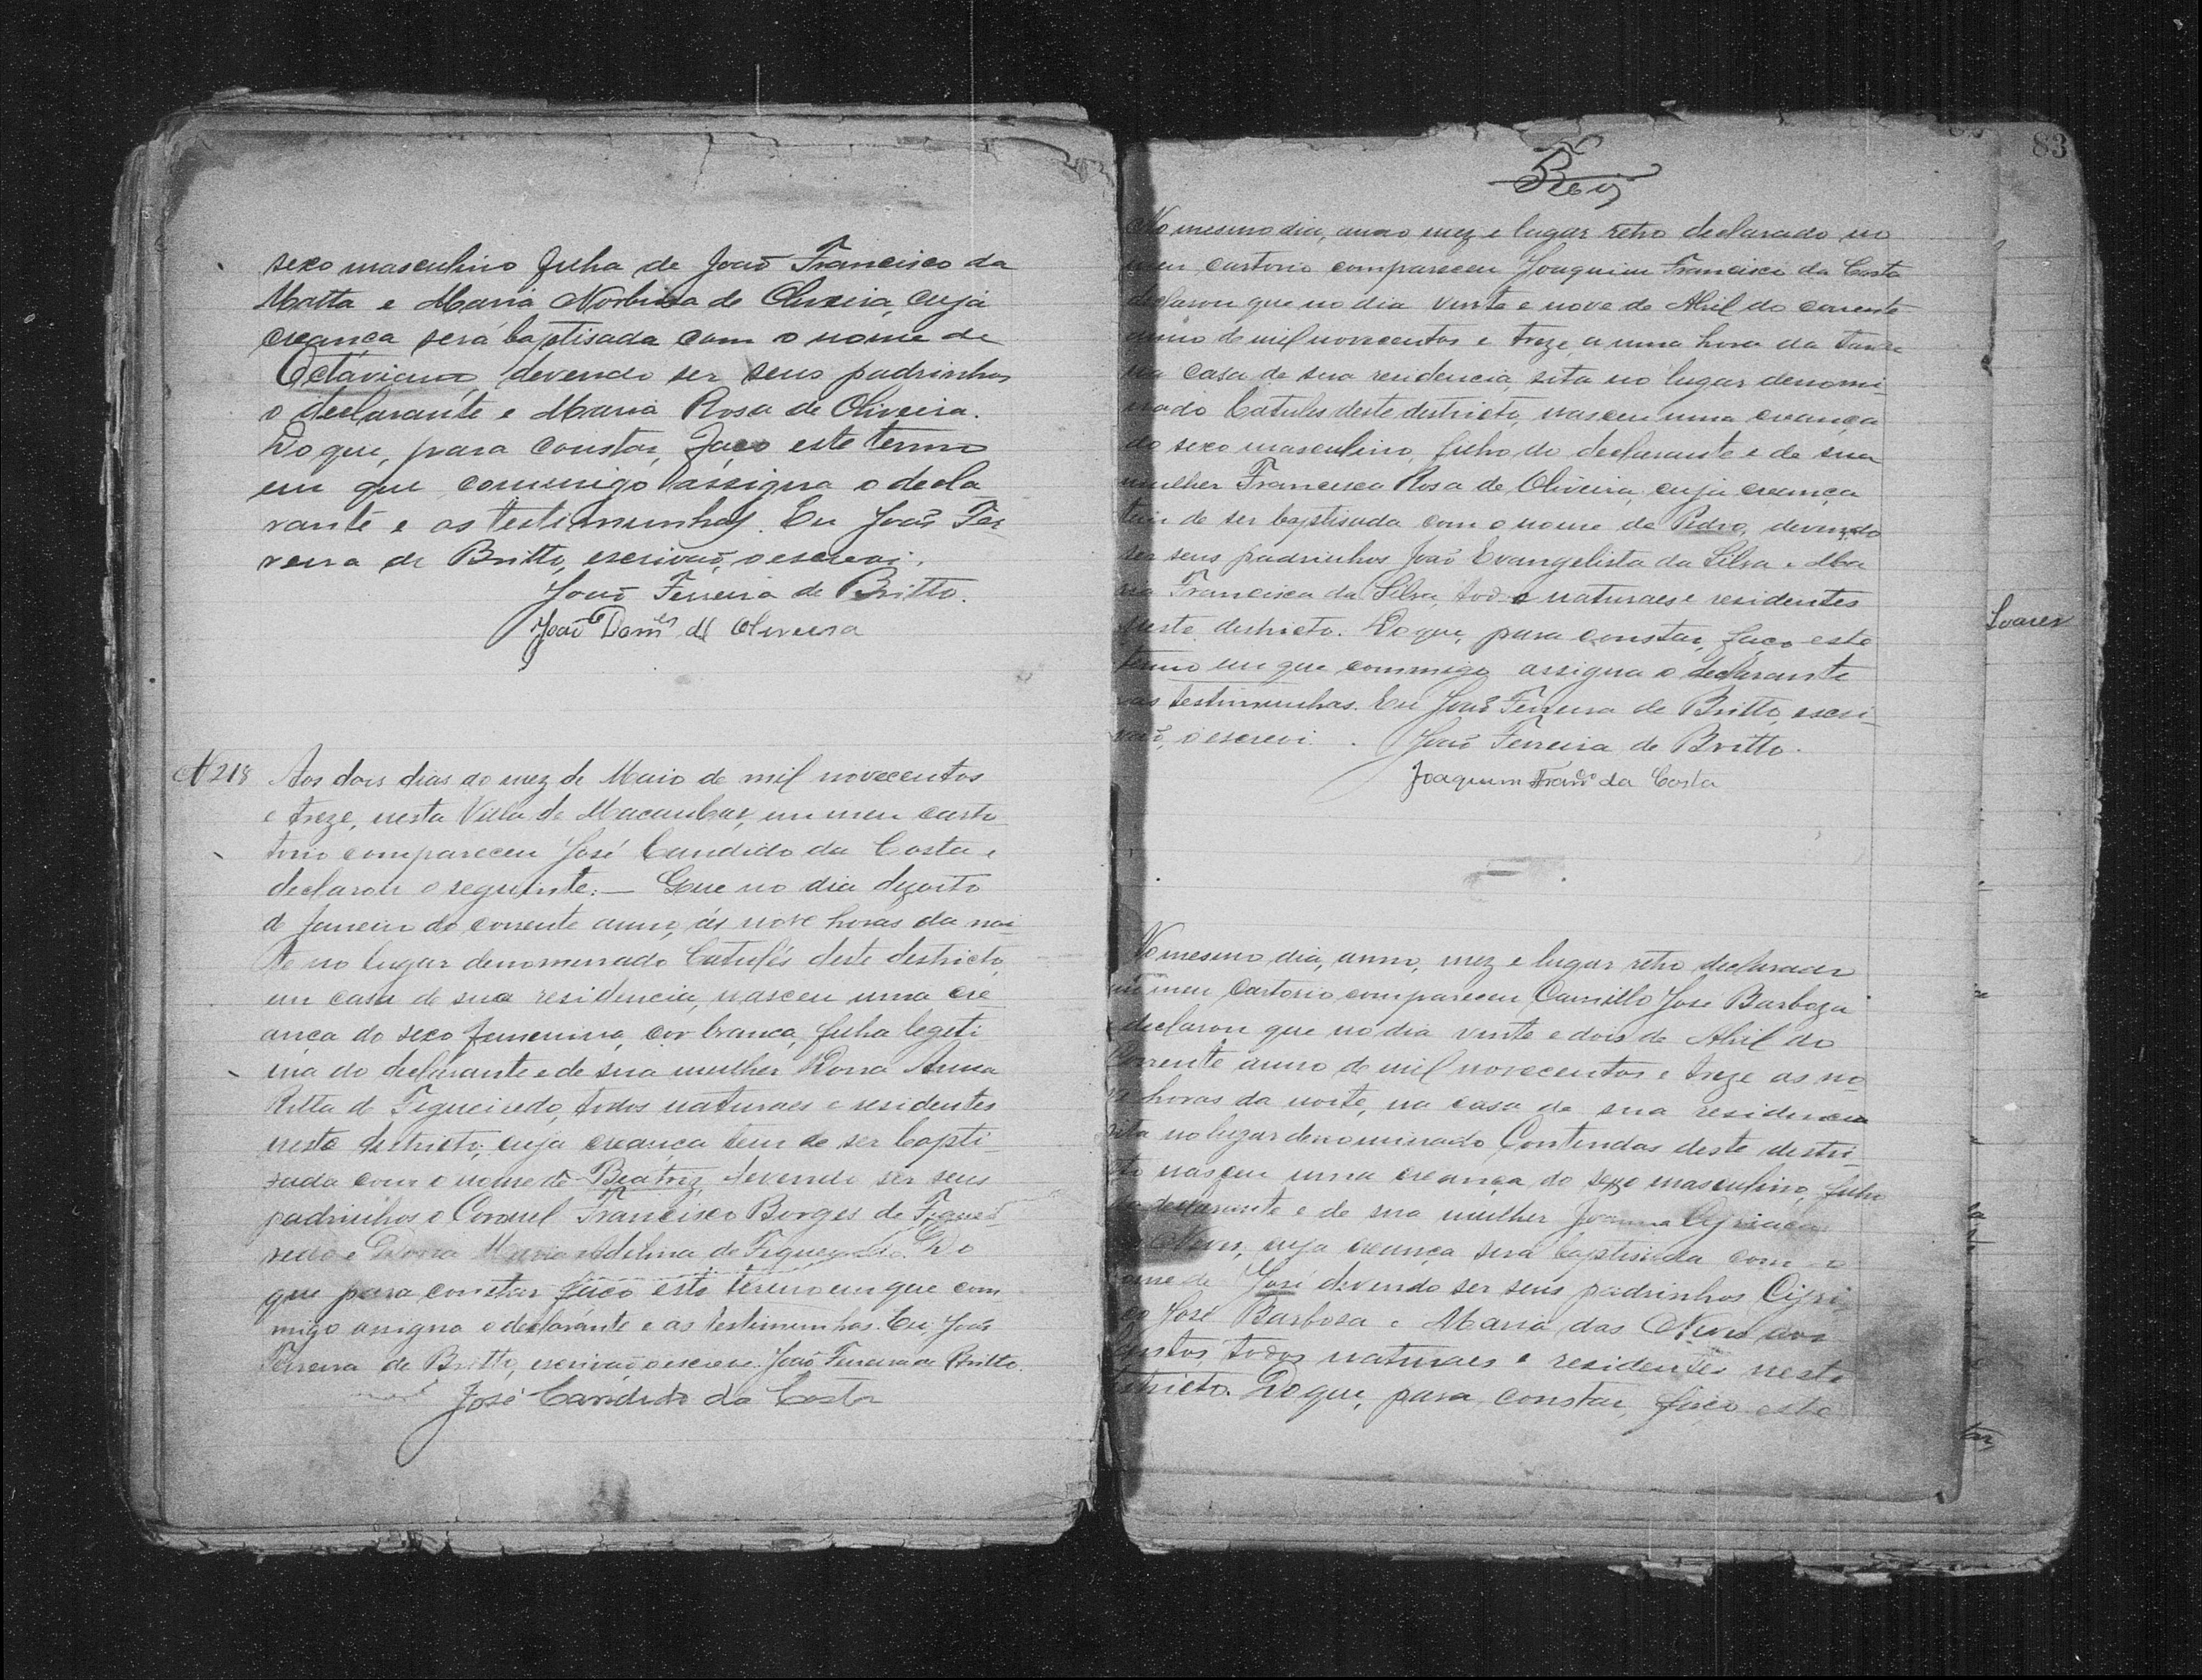 sexo masculino filha de João Francisco da
Matta e Maria Norbina de Oliveira, cuja
creança será baptisada com o nome de
Octaviano, devendo ser seus padrinhos
o declarante e Maria Rosa de Oliveira.
Do que, para constar, faço este termo
em que commigo assigna o decla
rante e as testimunhas. Eu João Fer
reira de Britto, escrivão, o escrevi.
João Ferreira de Britto.
João Doms de Oliveira
N 218 Aos dois dias do mez de Maio de mil novecentos
e treze, nesta Villa de Macaubas, em meu carto
torio compareceu José Candido da Costa e
declarou o seguinte: — Que no dia dezoito
de Janeiro do corrente anno, ás nove horas da noi
te no lugar denominado Catulés deste destricto,
em casa de sua residencia, nasceu uma cre
ança do sexo femenino, cor branca, filha legeti
ma do declarante e de sua mulher Dona Anna
Ritta de Figueiredo, todos naturaes e residentes
neste destricto; cuja creança tem de ser bapti-
sada com o nome de Beatriz, devendo ser seus
padrinhos o Coronel Francisco Borges de Figuei-
redo e Dona Maria Adelina de Figueiredo. Do
que para constar faço este termo em que com
migo assigna o declarante e as testimunhas. Eu, João
Ferreira de Britto, escrivão o escrevi. João Ferreira de Britto.
José Candido da Costa
83
Reis
No mesmo dia, anno mez e lugar retro declarado no
meu cartorio compareceu Joaquim Francisco da Costa
declarou que no dia vinte e nove de Abril do corrente
anno de mil novecentos e treze, a uma hora da tarde
na casa de sua residencia, sita no lugar denomi-
nado Catules deste destricto, nasceu uma creança
do sexo masculino, filho do declarante e de sua
mulher Francisca Rosa de Oliveira, cuja creança
tem de ser baptisada com o nome de Pedro, devendo
ser seus padrinhos João Evangelista da Silva e Ma
ria Francisca da Silva, todos naturaes e residentes
neste destricto. Do que, para constar, faço este
termo em que commigo assigna o declarante
e as testimunhas. Eu João Ferreira de Britto, escri-
vão, o escrevi. João Ferreira de Britto.
Joaquim Franco da Costa
No mesmo dia, anno, mez e lugar retro declarado
em meu Cartorio compareceu Camillo José Barboza
declarou que no dia vinte e dois de Abril do
Corrente anno de mil novecentos e treze as no
ve horas da noite, na casa de sua residencia
sita no lugar denominado Contendas deste destri-
cto nasceu uma creança do sexo masculino, filho
do declarante e de sua mulher Joanna Cyriaca
Neves, cuja creança será baptisada com o
nome de José devendo ser seus padrinhos Cypri
co José Barbosa e Maria das Neves dos
Santos, todos naturaes e residentes neste
destricto. Do que, para constar, faço este
Soares